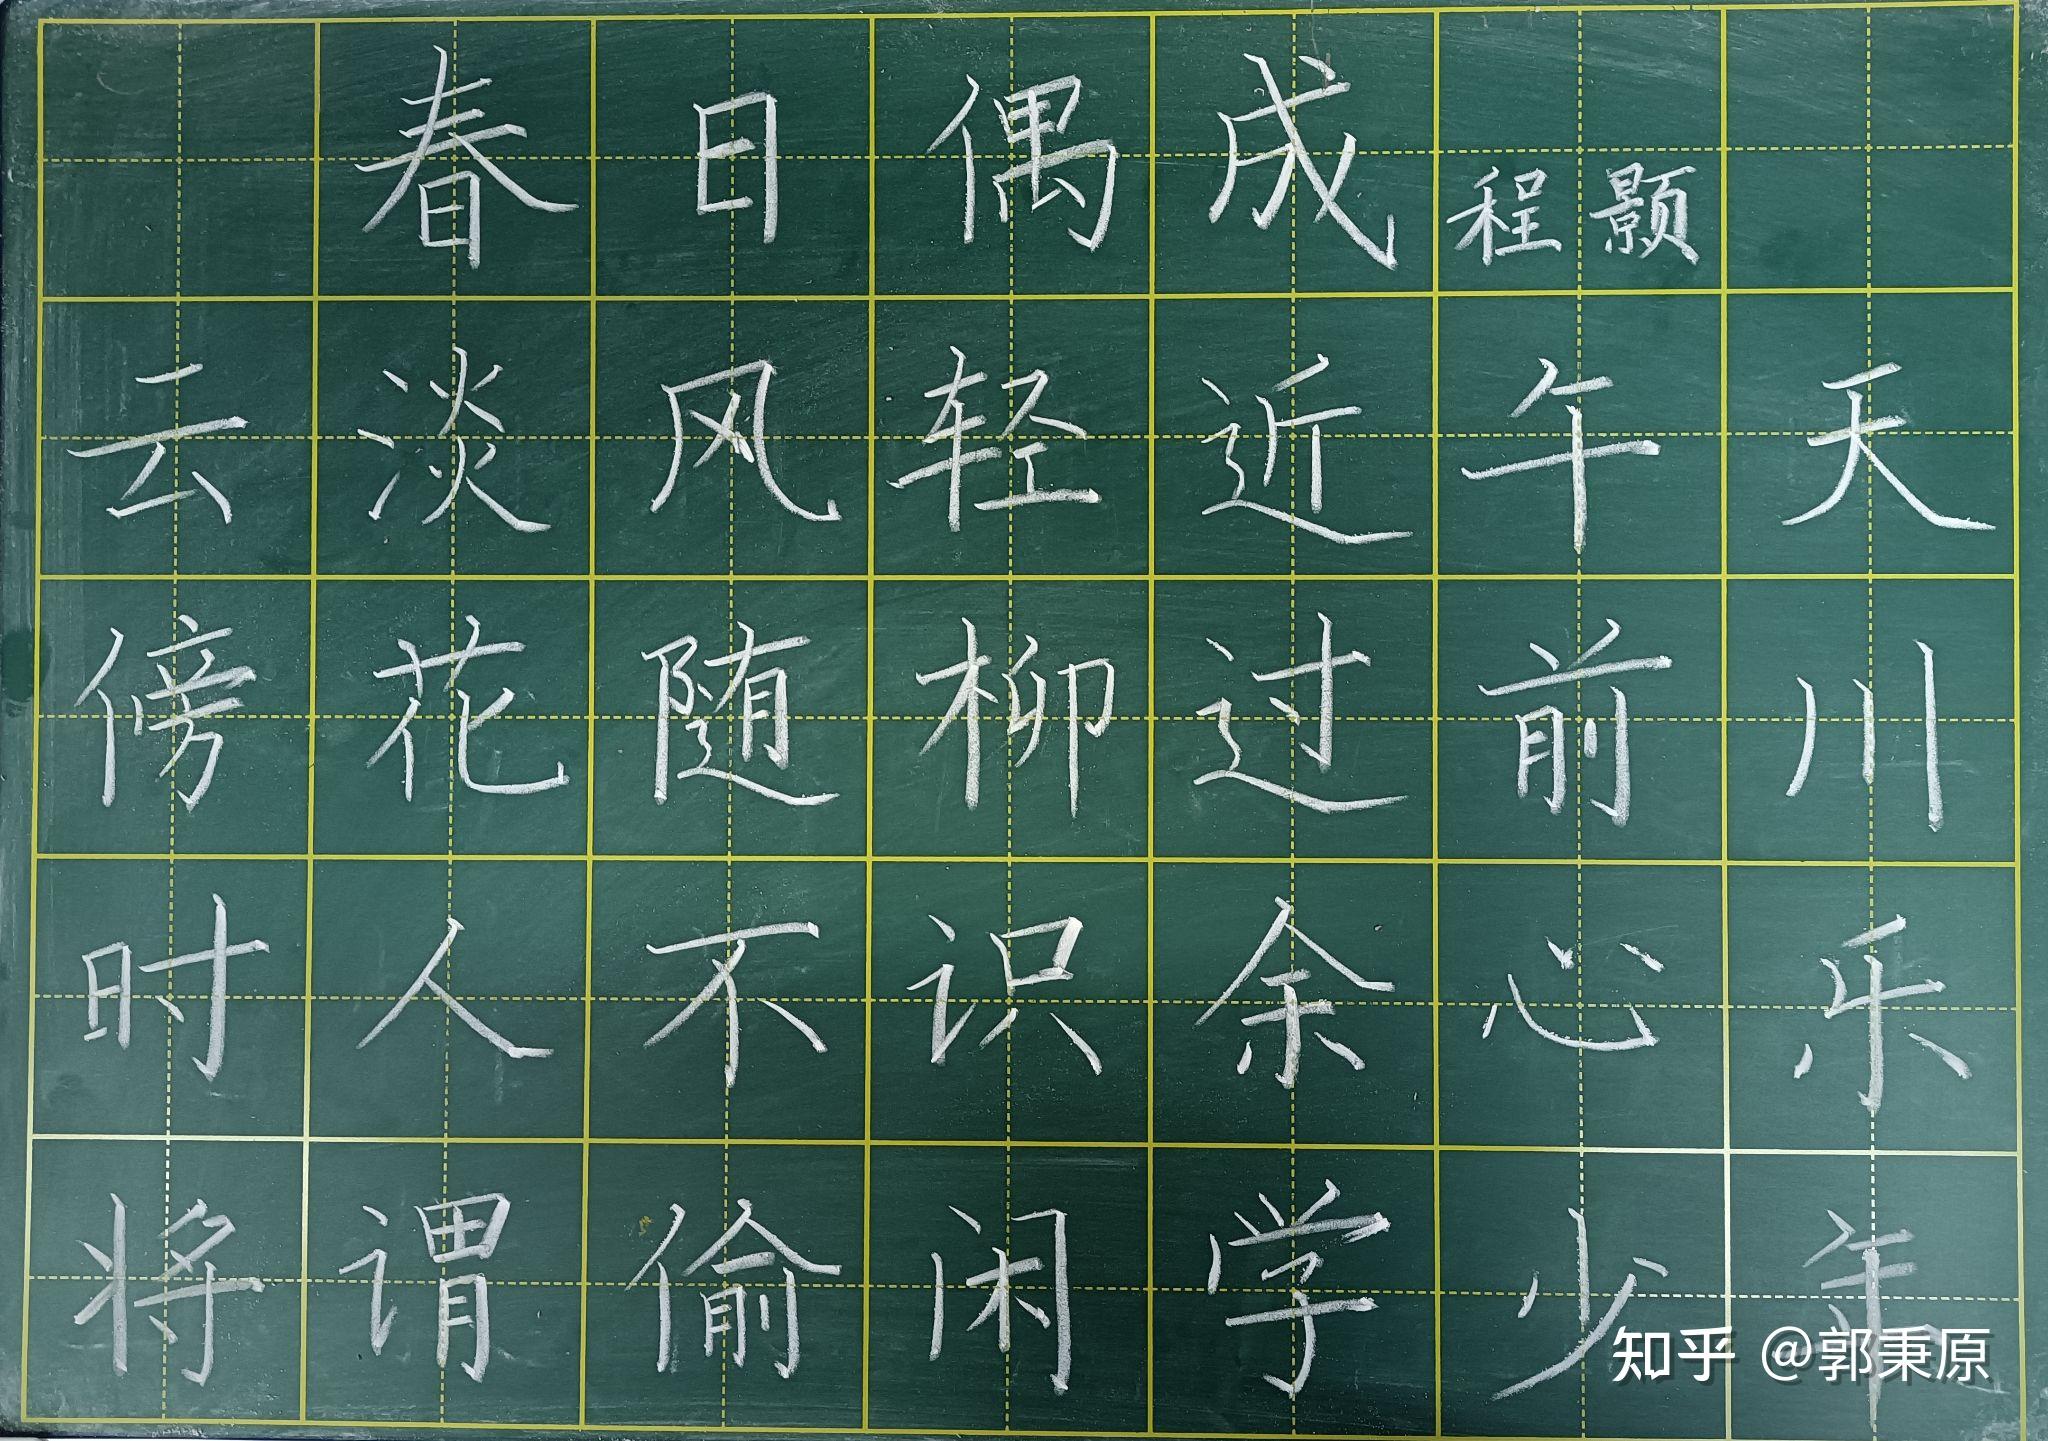 春日偶成 程颢
云淡风轻近午天
傍花随柳过前川
时人不识余心乐
将谓偷闲学少年
知乎 @郭秉原